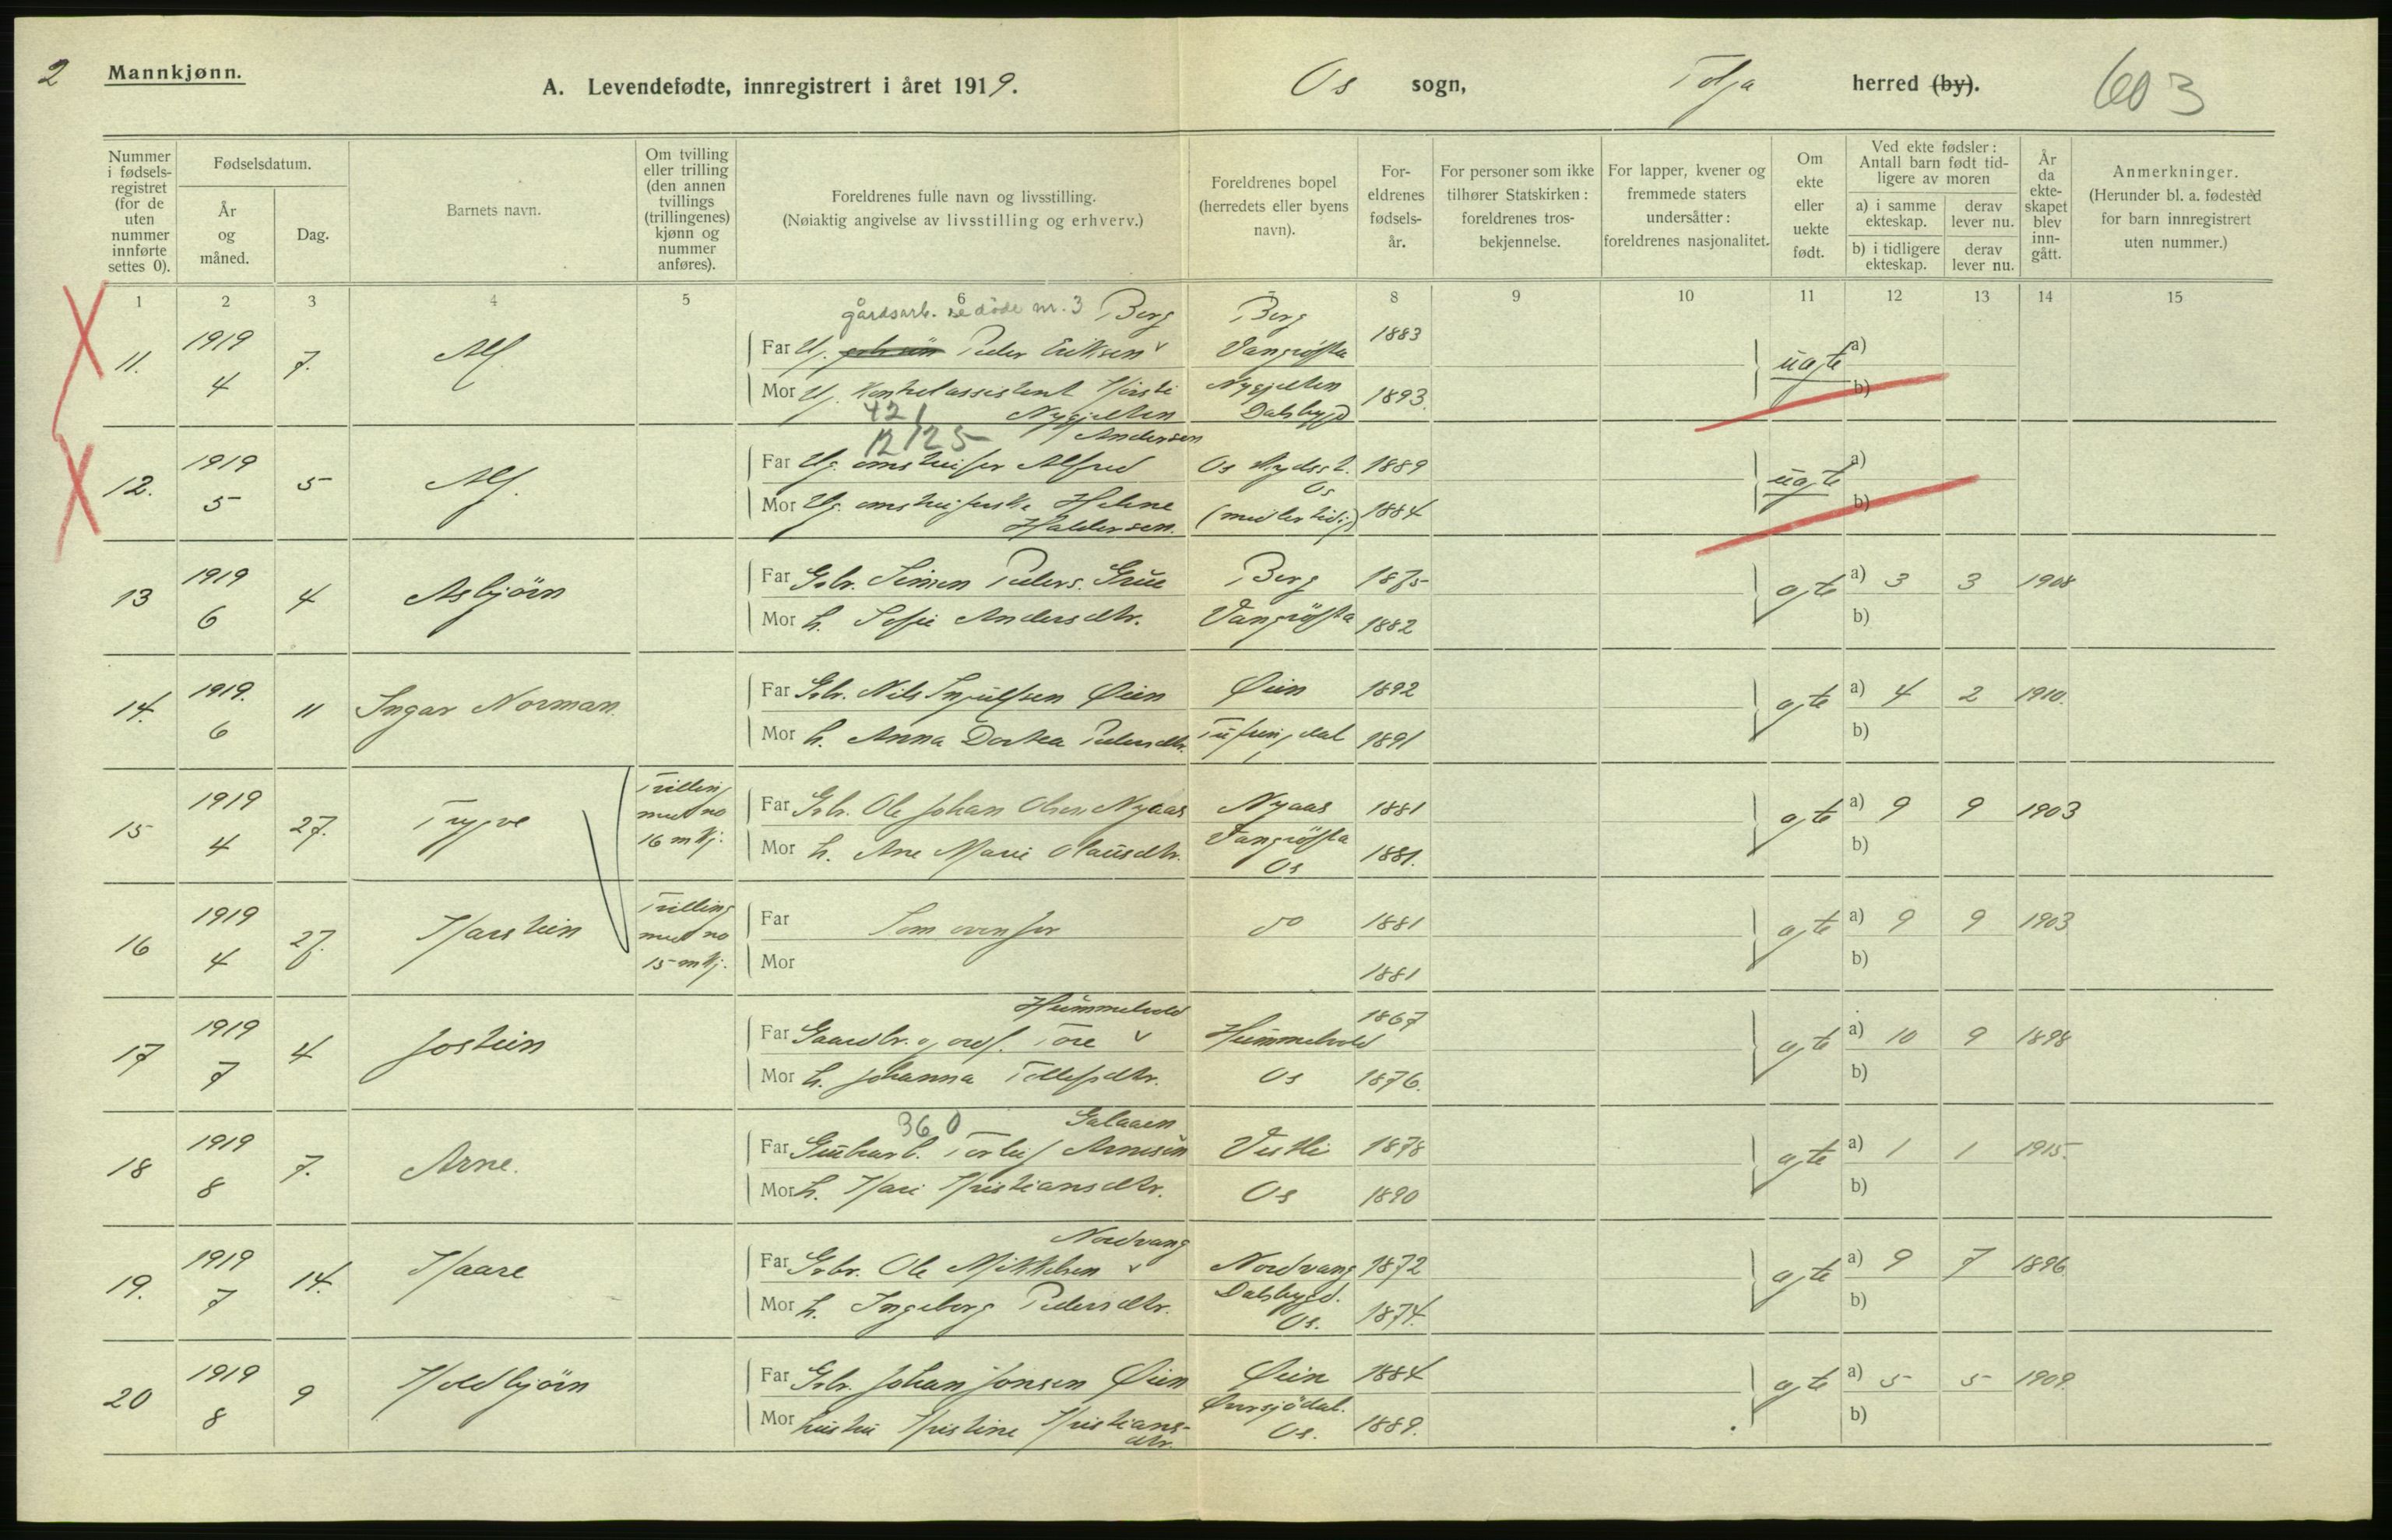 2 Mannkjønn.
A. Levendefødte, innregistrert i året 1919. Os sogn, Tolga herred (by). 603
Nummer i fødselsregistret (for de uten nummer innførte settes 0).
Fødselsdatum.
År og måned.
Dag.
Barnets navn.
Om tvilling eller trilling (den annen tvillings (trillingenes) kjønn og nummer anføres).
Foreldrenes fulle navn og livsstilling.
(Nøiaktig angivelse av livsstilling og erhverv.)
Foreldrenes bopel (herredets eller byens navn).
Foreldrenes fødselsår.
For personer som ikke tilhører Statskirken: foreldrenes trosbekjennelse.
For lapper, kvener og fremmede staters undersåtter: foreldrenes nasjonalitet.
Om ekte eller uekte født.
Ved ekte fødsler: Antall barn født tidligere av moren
a) i samme ekteskap.
derav lever nu.
b) i tidligere ekteskap.
derav lever nu.
År da ekteskapet blev inngått.
Anmerkninger.
(Herunder bl. a. fødested for barn innregistrert uten nummer.)
1 2 3 4 5 6 8 9 10 11 12 13 14 15
gårdsarb. se døde nr. 3 Berg Berg
11. 1919 7. Alf Far Ug. Peder Eriksen Vangrøfta 1883 uægte a)
4 Mor Ug. Kontrolassistent Kirsti Nygjelten 1893. b)
421 Nygjelten Dalsbygd
12/25 Andersen
12. 1919 5 Alf. Far Ug. omstreifer Alfred Os 1889 uægte a)
5 Mor Ug. omstreiferske Helene Os 1884 b)
Haldorsen. (midlertidig)
13 1919 4 Asbjörn Far Gbr. Simen Peders. Grue Berg 1875 ægte a) 3 3 1908
6 Mor h. Sofie Andersdtr. Vangröfta 1882 b)
14. 1919. 11 Ingar Norman. Far Gbr. Nils Ingulfsen Øien Øien 1892 ægte a) 4 2 1910.
6 Mor h. Anna Dortea Pedersdtr. Tufsingdal 1891 b)
15 1919 27. Trygve Tvilling med no 16 mkj. Far Gbr. Ole Johan Olsen Nyaas Nyaas 1881 ægte a) 9 9 1903
4 Mor h. Ane Marie Olausdtr. Vangröfta Os 1881. b)
16 1919 27. Karstein Tvilling med no 15 mkj. Far Som ovenfor do 1881 ægte a) 9 9 1903
4 Mor 1881 b)
Hummelvold
17 1919 4 Jostein Far Gaardbr. og ordf. Tore Hummelvold 1867 ægte a) 10 9 1898
7 Mor h. Johanna Tollefsdtr. Os 1876. b)
360 Galaaen
18 1919 7. Arne. Far Grubearb. Torleif Arnesen Vestli 1878 ægte a) 1 1 1915.
8 Mor h. Kari Kristiansdtr. Os 1890 b)
Nordvang
19. 1919 14. Kaare Far Gbr. Ole Mikkelsen Nordvang 1872 ægte a) 9 7 1896
7 Mor h. Ingeborg Pedersdtr. Dalsbygd. Os. 1874. b)
20 1919 9 Koldbjörn Far Gbr. Johan Jonsen Øien Øien 1884 ægte a) 5 5 1909
8 Mor hustru Kristine Kristiansdtr. Narsjödal. Os. 1889. b)